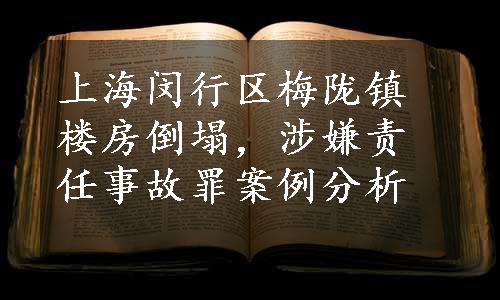 上海闵行区梅陇镇
楼房倒塌，涉嫌责
任事故罪案例分析